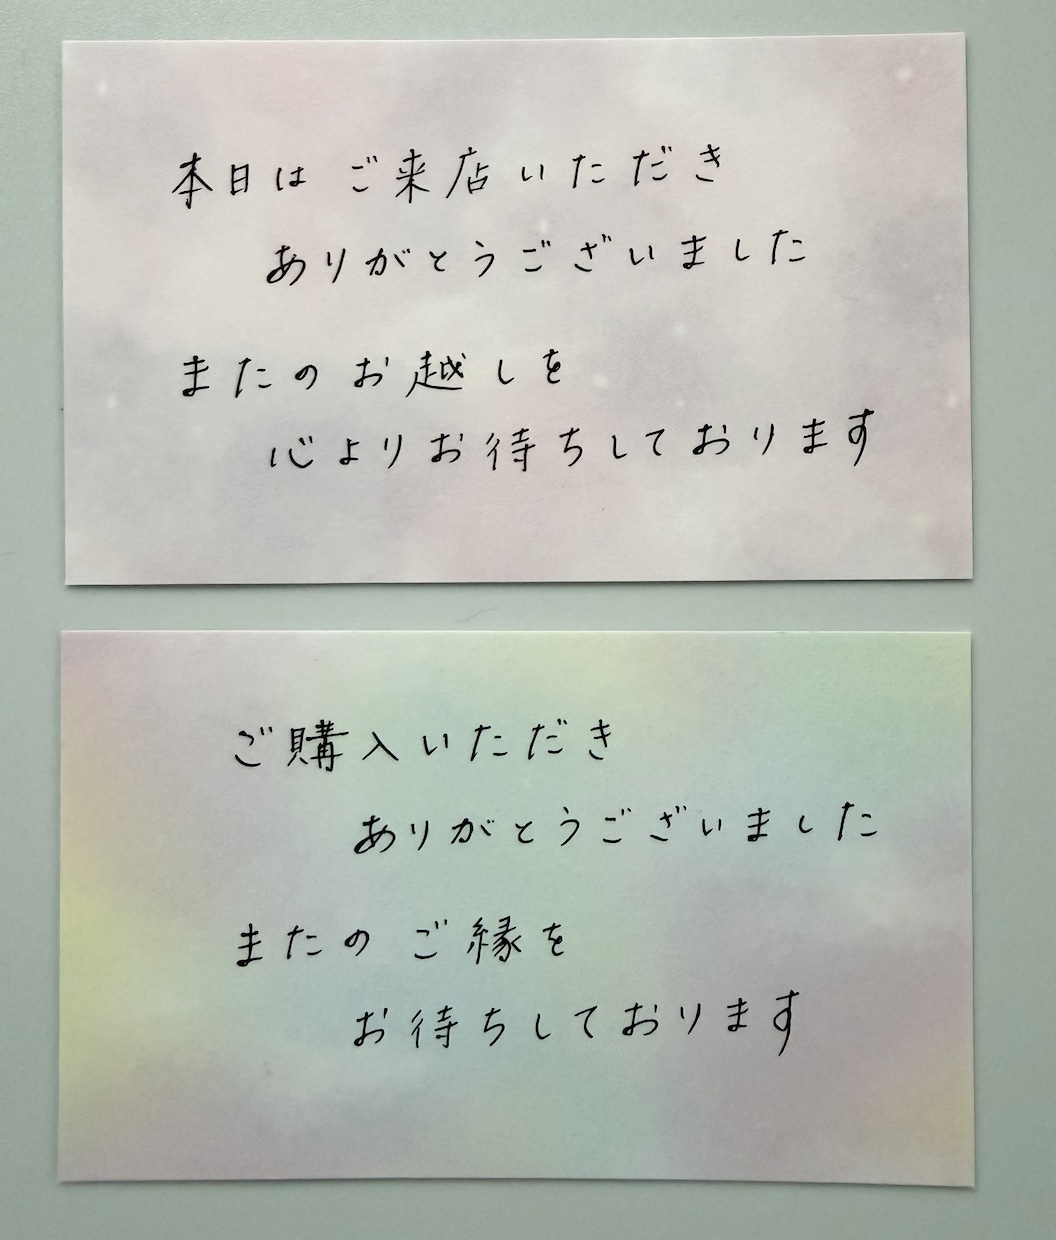 本日は ご来店いただき
ありがとうございました
またの お越しを
心よりお待ちしております
ご購入いただき
ありがとうございました
またの ご縁を
お待ちしております